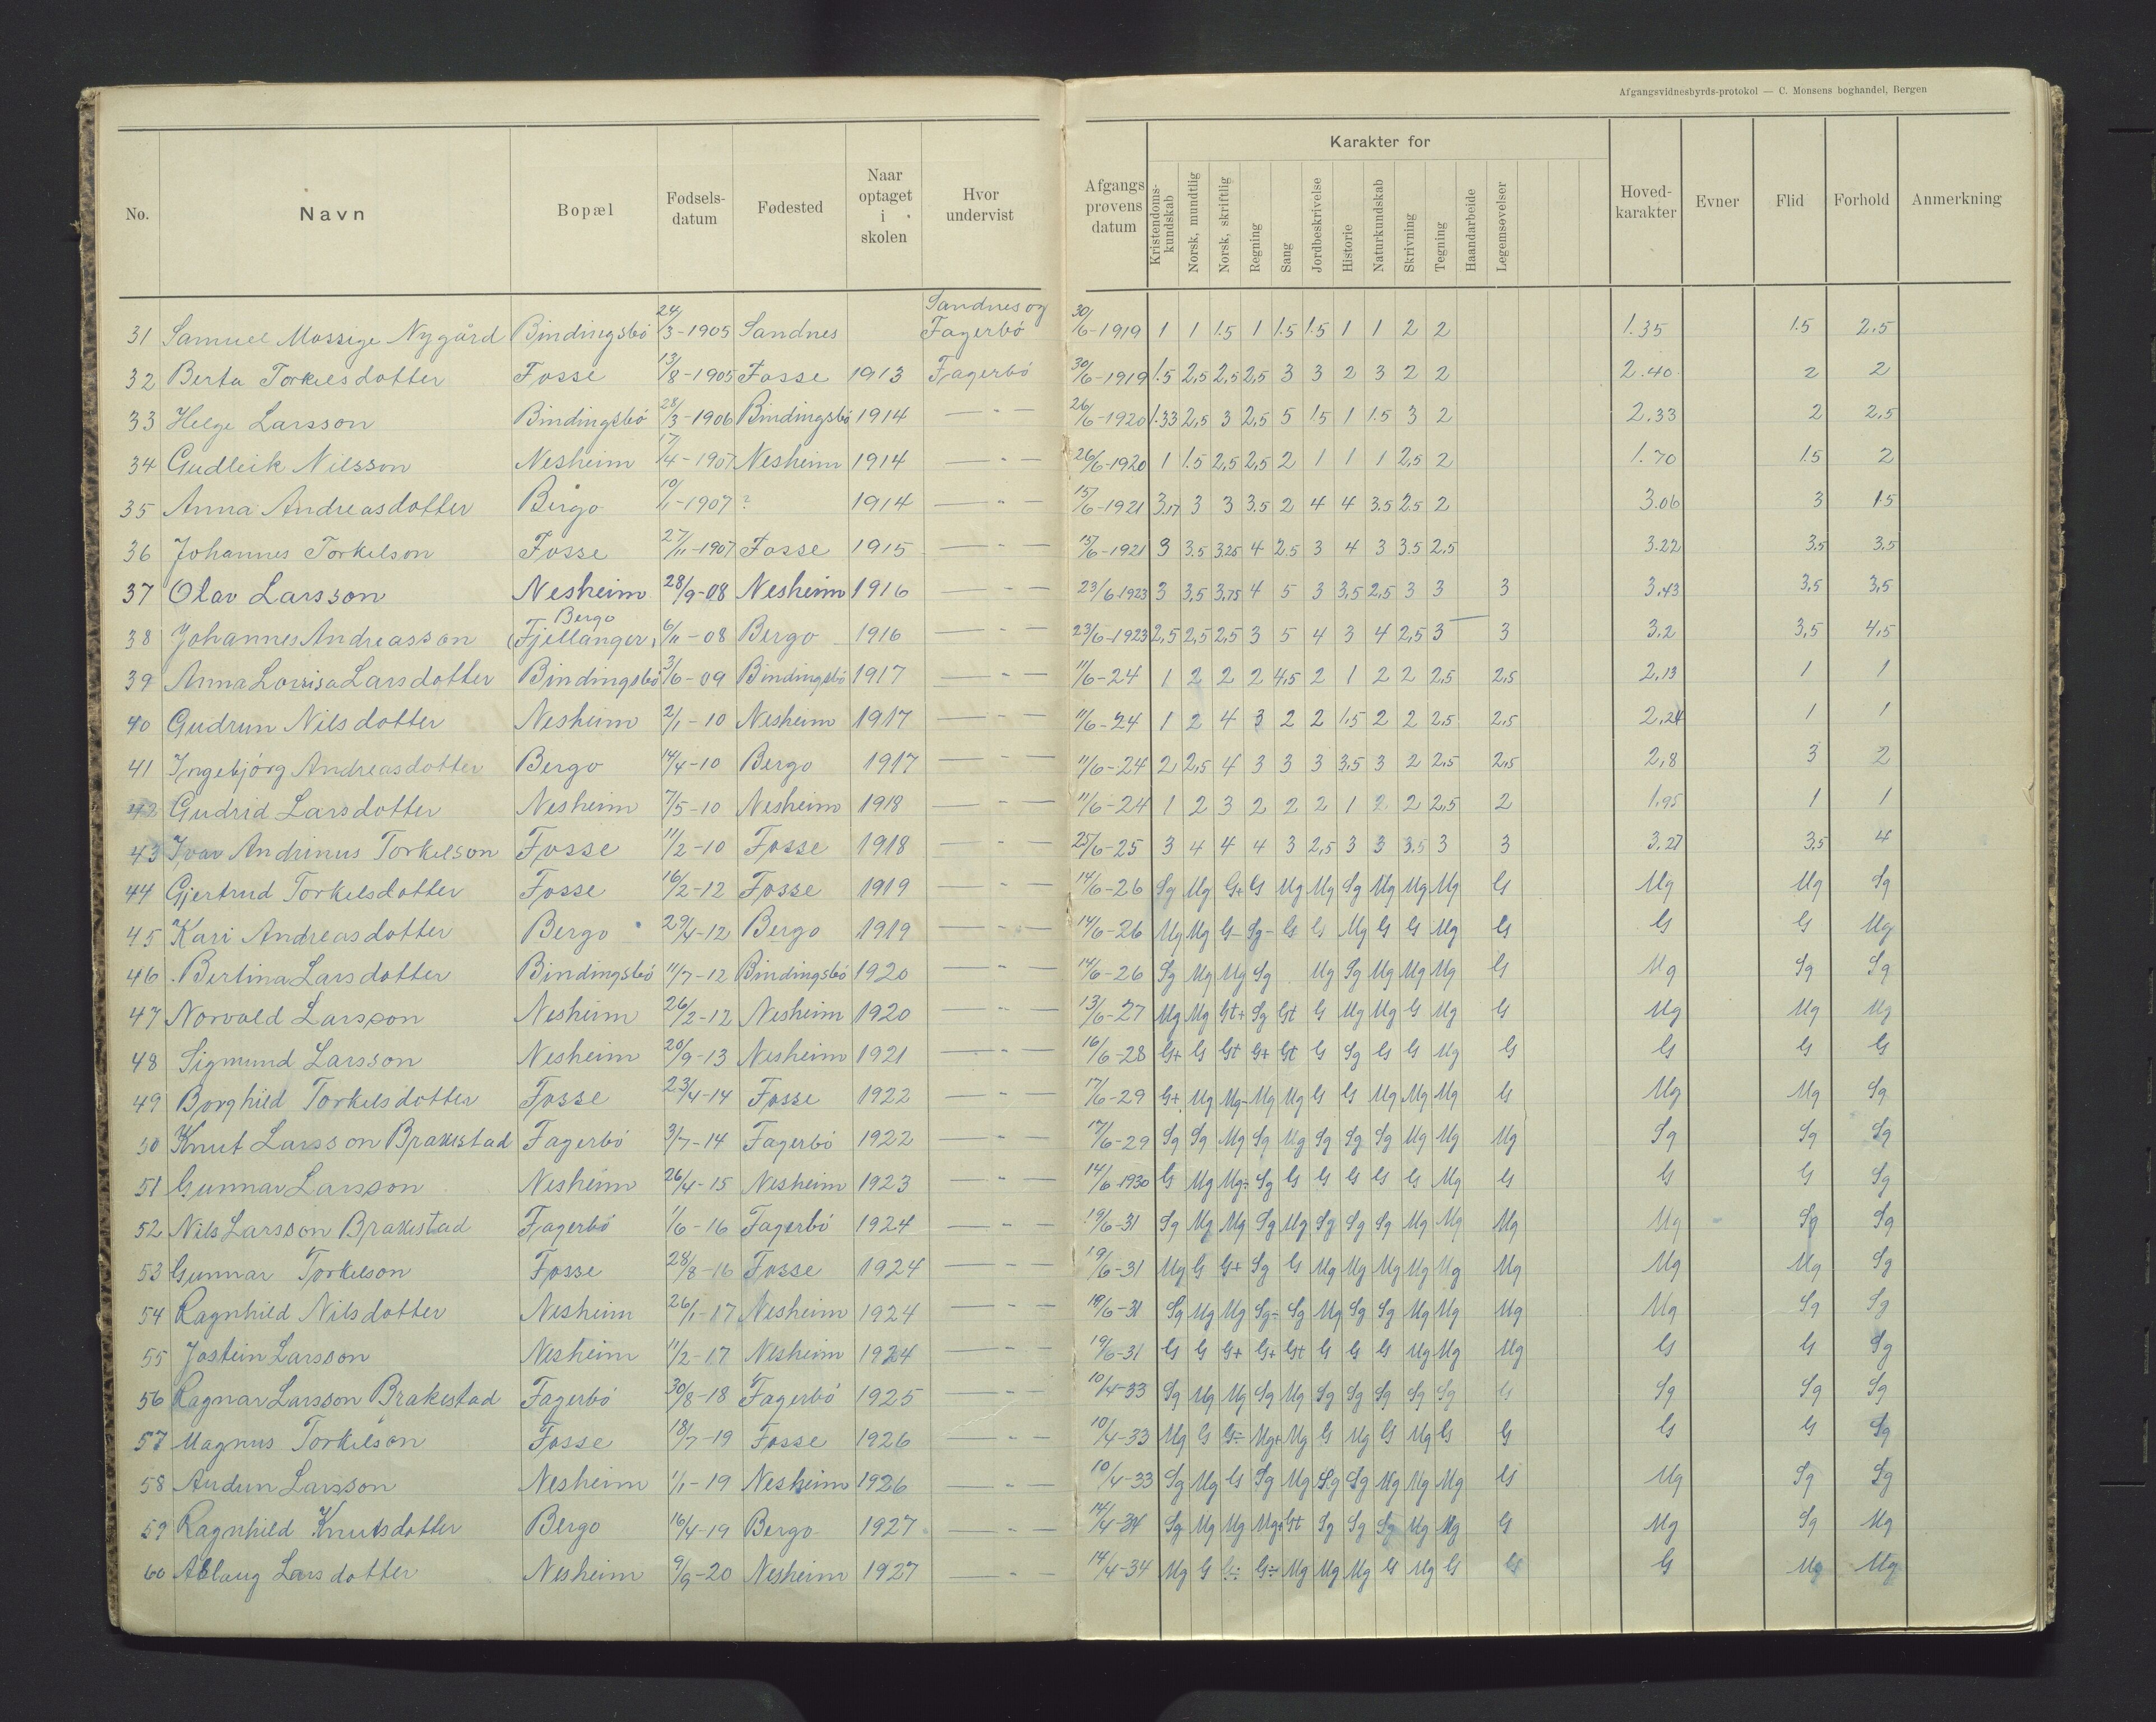 Afgangsvidnesbyrds-protokol — C. Monsens boghandel, Bergen
No. Navn Bopæl Fødsels-datum Fødested Naar optaget i skolen Hvor undervist Afgangsprøvens datum Karakter for Hoved-karakter Evner Flid Forhold Anmerkning
Kristendoms-kundskab Norsk, mundtlig Norsk, skriftlig Regning Sang Jordbeskrivelse Historie Naturkundskab Skrivning Tegning Haandarbeide Legemsøvelser
31 Samuel Mossige Nygård Bindingsbö 24/3-1905 Sandnes Sandnes og Fagerbö 30/6-1919 1 1 1.5 1 1.5 1.5 1 1 2 2 1.35 1.5 2,5
32 Berta Torkelsdotter Fosse 13/8-1905 Fosse 1913 Fagerbö 30/6-1919 1.5 2,5 2,5 2,5 3 3 2 3 2 2 2.40 2 2
33 Helge Larsson Bindingsbö 28/3-1906 Bindingsbö 1914 — " — 26/6-1920 1.33 2,5 3 2,5 5 1.5 1 1.5 3 2 2.33 2 2,5
34 Gudleik Nilsson Nesheim 17/4-1907 Nesheim 1914 — " — 26/6-1920 1 1.5 2,5 2,5 2 1 1 1 2,5 2 1.70 1.5 2
35 Anna Andreasdotter Birgo 10/1-1907 ? 1914 — " — 15/6-1921 3.17 3 3 3.5 2 4 4 3.5 2.5 2 3.06 3 1.5
36 Johannes Torkelson Fosse 27/11-1907 Fosse 1915 — " — 15/6-1921 3 3.5 3.25 4 2.5 3 4 3 3.5 2,5 3.22 3,5 3,5
37 Olav Larsson Nesheim 28/9-08 Nesheim 1916 — " — 23/6-1923 3 3,5 3,75 4 5 3 3,5 2,5 3 3 3 3,43 3,5 3,5
38 Johannes Andreasson Bergo (Fjellanger) 6/11-08 Bergo 1916 — " — 23/6-1923 2,5 2,5 2,5 3 5 4 3 4 2,5 3 — 3 3,2 3,5 4,5
39 Anna Lovisa Larsdotter Bindingsbö 3/6-09 Bindingsbö 1917 — " — 11/6-24 1 2 2 2 4,5 2 1 2 2 2,5 2,5 2,13 1 1
40 Gudrun Nilsdotter Nesheim 2/1-10 Nesheim 1917 — " — 11/6-24 1 2 4 3 2 2 1,5 2 2 2,5 2,5 2,24 1 1
41 Ingebjörg Andreasdotter Bergo 14/4-10 Bergo 1917 — " — 11/6-24 2 2,5 4 3 3 3 3,5 3 2 2,5 2,5 2,8 3 2
42 Gudrid Larsdotter Nesheim 7/5-10 Nesheim 1918 — " — 11/6-24 1 2 3 2 2 2 1 2 2 2,5 2 1,95 1 1
43 Ivar Andrinus Torkelson Fosse 11/2-10 Fosse 1918 — " — 25/6-25 3 4 4 4 3 2,5 3 3 3,5 3 3 3.27 3,5 4
44 Gjertrud Torkelsdotter Fosse 16/2-12 Fosse 1919 — " — 14/6-26 Sg Mg G+ G Mg Mg Sg Mg Mg Mg G Mg Mg Sg
45 Kari Andreasdotter Bergo 29/4-12 Bergo 1919 — " — 14/6-26 Mg Mg G- Sg- G G Mg G G Mg G G G Mg
46 Bertina Larsdotter Bindingsbö 11/7-12 Bindingsbö 1920 — " — 14/6-26 Sg Mg Mg Sg Mg Sg Mg Mg Mg G Mg Sg Sg
47 Norvald Larsson Nesheim 26/2-12 Nesheim 1920 — " — 13/6-27 Mg Mg G+ Sg G+ G Mg Mg G Mg G Mg Mg Mg
48 Sigmund Larsson Nesheim 20/9-13 Nesheim 1921 — " — 16/6-28 G+ G G+ G+ G+ G Sg G G Mg G G G G
49 Borghild Torkelsdotter Fosse 23/4-14 Fosse 1922 — " — 17/6-29 G+ Mg Mg- Mg Mg G G Mg Mg Mg G Mg Mg Sg
50 Knut Larsson Brakestad Fagerbö 3/7-14 Fagerbö 1922 — " — 17/6-29 Sg Sg Mg Sg Mg Sg Sg Sg Mg Mg Mg Sg Sg Sg
51 Gunnar Larsson Nesheim 26/4-15 Nesheim 1923 — " — 14/6-1930 G Mg Mg÷ Sg G G G G G Mg G G G Sg
52 Nils Larsson Brakestad Fagerbö 1/6-16 Fagerbö 1924 — " — 19/6-31 Sg Mg Mg Sg Mg Sg Sg Sg Mg Mg Mg Mg Sg Sg
53 Gunnar Torkelson Fosse 28/8-16 Fosse 1924 — " — 19/6-31 Mg G G+ Sg G Mg Mg Mg Mg Mg Mg Mg Mg Sg
54 Ragnhild Nilsdotter Nesheim 26/1-17 Nesheim 1924 — " — 19/6-31 Sg Mg Mg Sg÷ Sg Mg Sg Sg Mg Mg Mg Mg Sg Sg
55 Jostein Larsson Nesheim 11/2-17 Nesheim 1924 — " — 19/6-31 G G G+ G+ G+ G G G Mg Mg Mg G G Sg
56 Ragnar Larsson Brakestad Fagerbö 30/8-18 Fagerbö 1925 — " — 10/4-33 Sg Mg Mg Sg Mg Sg Sg Sg Sg Sg G Sg Sg Sg
57 Magnus Torkelson Fosse 18/7-19 Fosse 1926 — " — 10/4-33 Mg G G÷ Mg+ Mg G Mg G Mg G G G G Sg
58 Audun Larsson Nesheim 1/1-19 Nesheim 1926 — " — 10/4-33 Sg Mg G Sg Mg Sg Sg Mg Mg Mg G Mg Sg Sg
59 Ragnhild Knutsdotter Bergo 16/4-19 Bergo 1927 — " — 14/4-34 Sg Mg Mg Mg+ G+ Sg Sg Sg Mg Mg G Mg Sg Mg
60 Ablaug Larsdotter Nesheim 9/9-20 Nesheim 1927 — " — 14/4-34 Mg G G÷ G÷ Mg Mg Mg G Mg G G G Mg Mg